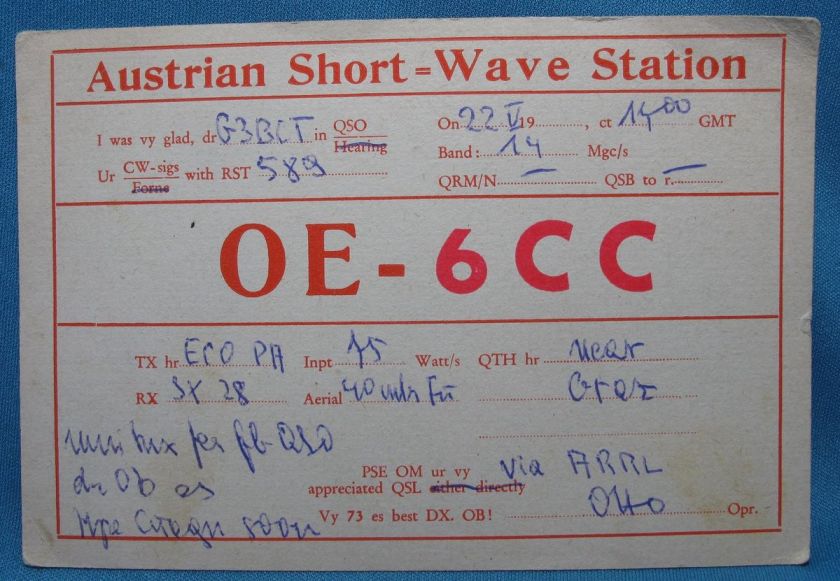 Austrian Short=Wave Station
I was vy glad, dr G3BCT in QSO Hearing
On 22 V 19........, ct 14 00 GMT
Ur CW-sigs Forne with RST 589
Band: 14 Mgc/s
QRM/N — QSB to r. —
OE-6CC
TX hr ECO PA Inpt 75 Watt/s QTH hr near
RX SX 28 Aerial 40 mtr Graz
fb-QSO
dr OB es
soon
PSE OM ur vy via ARRL
appreciated QSL either directly
Vy 73 es best DX. OB! Otto Opr.